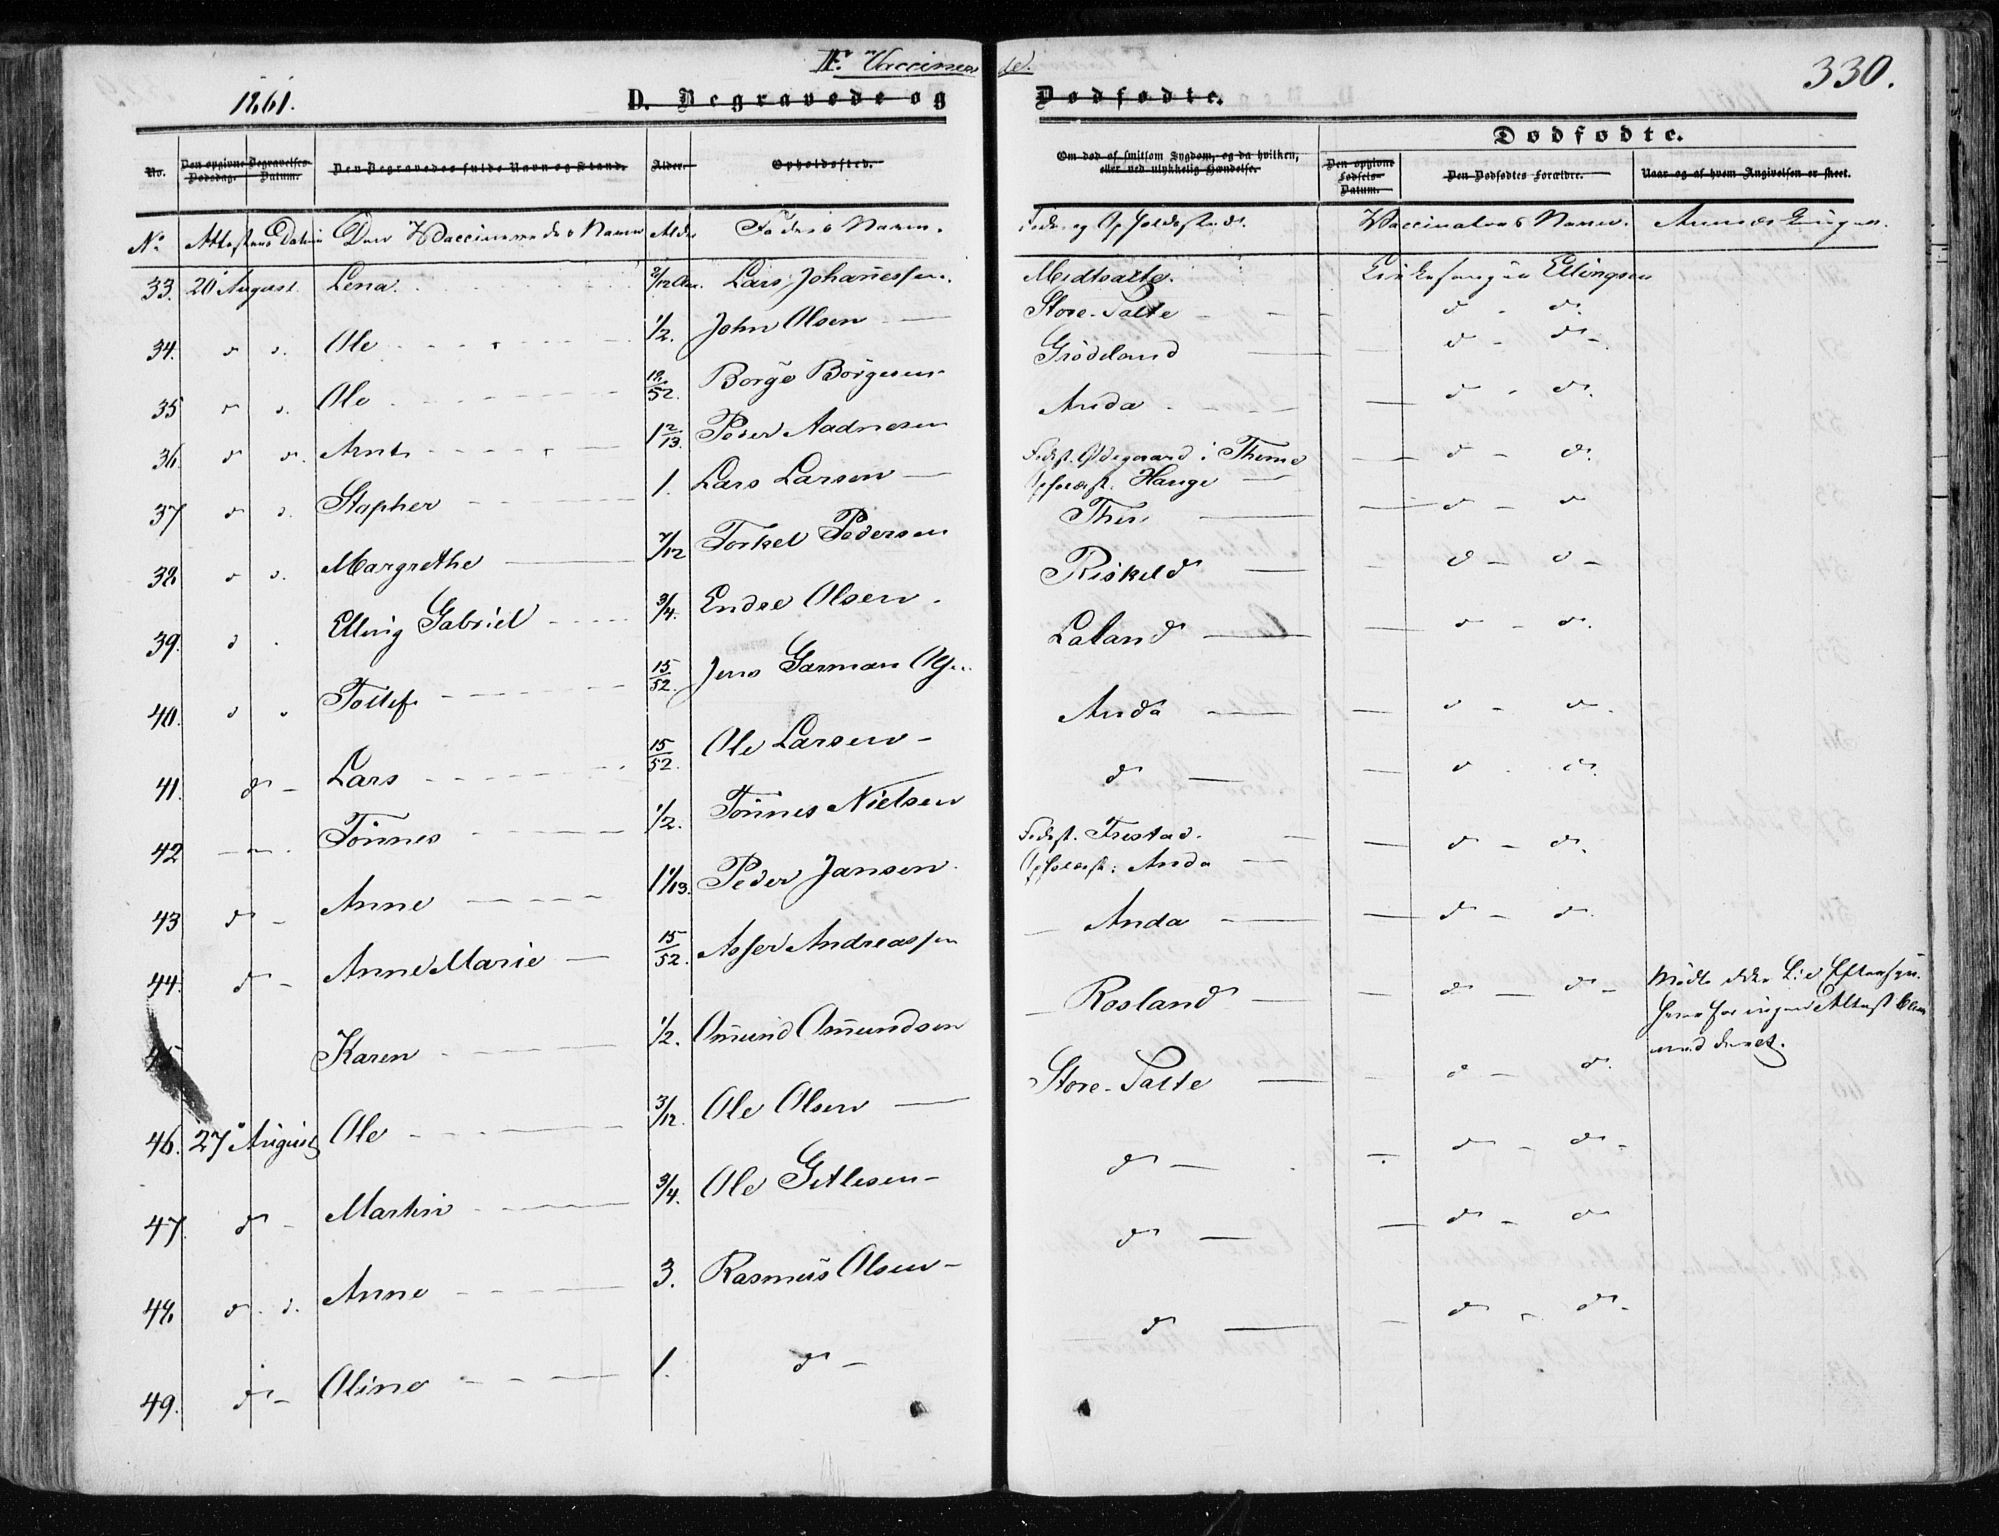 F. Vaccinerede.
330.
1861.
D. Begravede og Dødfødte.
Dødfødte.
No. Den opgivne Dødsdag. Begravelses-Datum. Den Begravedes fulde Navn og Stand. Alder. Opholdssted. Om død af smitsom Sygdom, og da hvilken, eller ved ulykkelig Hændelse. Den opgivne Fødsels-Datum. Den Dødfødtes Forældre. Naar og af hvem Angivelsen er skeet.
No Attestens Datum Den Vaccineredes Navn Alder Faders Navn. Føde- og Opholdssted. Vaccinateurs Navn. Anmærkninger.
33. 20 August Lena. 2/12 Aar. Lars Johannessen. Midtsalte. Kirkesanger Ellingsen
34. d d. Ole 1/2. John Olsen Store-Salte d d.
35 d d. Ole 18/52. Børge Børgesen Grødeland d d.
36. d d. Arnt 1 2/13. Peder Aadnesen Anda d d.
37 d d. Stopher 1. Lars Larsen Fødest. Ødegaard i Thime d d.
Opholdst. Hauge
38 d d. Margrethe 7/12 Torkel Pedersen Thu d d
39. d Elling Gabriel 3/4. Endre Olsen. Riskeld d d
40. d d Tollef 15/52. Jens Garman Laland d d.
41. d Lars 15/52. Ole Larsen Anda d d.
42 Tönnes 1/2. Tönnes Nielsen d d d.
43 d Anne 1 1/13. Peder Jansen. Fødest. Friestad. d d.
Opholdst: Anda
44. d Anne Marie 15/52. Asser Andreassen Anda d d.
45 Karen 1/2. Omund Omundsen Rosland d d Mødte ikke til Eftersyn.
hvorfor ingen Attest blev
meddeelt.
46. 27 August Ole 3/12. Ole Olsen Store-Salte d d.
47. d Martin 3/4. Ole Gitlesen d d d
48 d d. Anne 3. Rasmus Olsen d d d
49. d Oline 1. d d d d